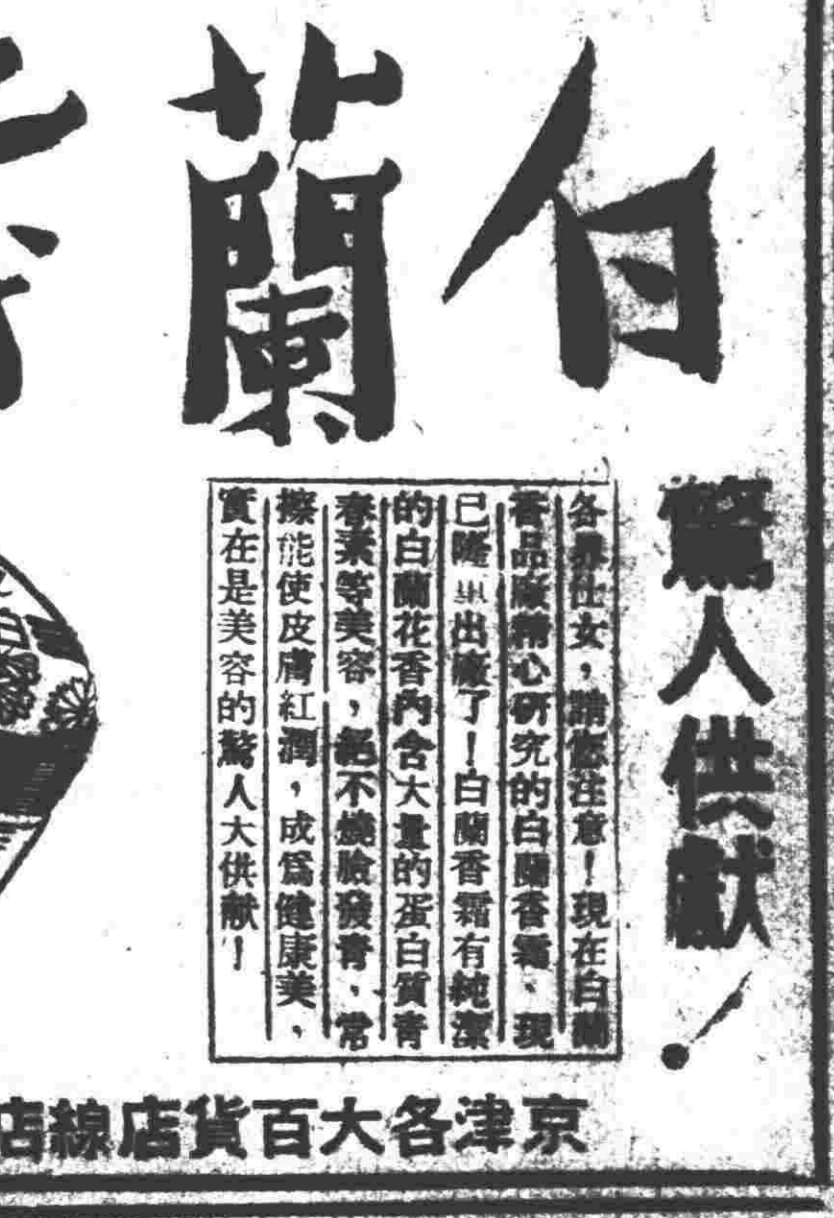 白蘭
驚人供献！
各界仕女，請您注意！現在白蘭
香品廠精心研究的白蘭香霜、現
已隆重出廠了！白蘭香霜有純潔
的白蘭花香內含大量的蛋白質青
春素等美容，絕不燒臉發青，常
擦能使皮膚紅潤，成爲健康美，
實在是美容的驚人大供献！
京津各大百貨店線店